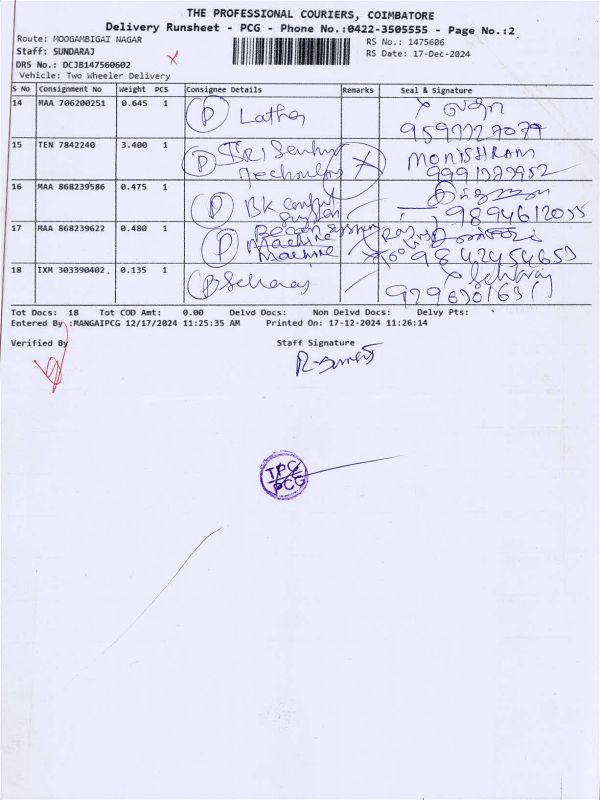 THE PROFESSIONAL COURIERS, COIMBATORE
Delivery Runsheet - PCG - Phone No.:0422-3505555 - Page No.:2
Route: MOOGAMBIGAI NAGAR
RS No.: 1475606
Staff: SUNDARAJ
RS Date: 17-Dec-2024
DRS No.: DCJB147560602
Vehicle: Two Wheeler Delivery
S No Consignment No Weight PCS Consignee Details Remarks Seal & Signature
14 MAA 706200251 0.645 1 P Latha லதா
15 TEN 7842240 3.400 1 P MONISHRAM
16 MAA 868239586 0.475 1 P BK 9894612055
17 MAA 868239622 0.480 1 P Machine 9842454653
Machine
18 IXM 303390402 0.135 1 P
Tot Docs: 18 Tot COD Amt: 0.00 Delvd Docs: Non Delvd Docs: Delvy Pts:
Entered By :MANGAIPCG 12/17/2024 11:25:35 AM Printed On: 17-12-2024 11:26:14
Verified By Staff Signature
TPC
PCG